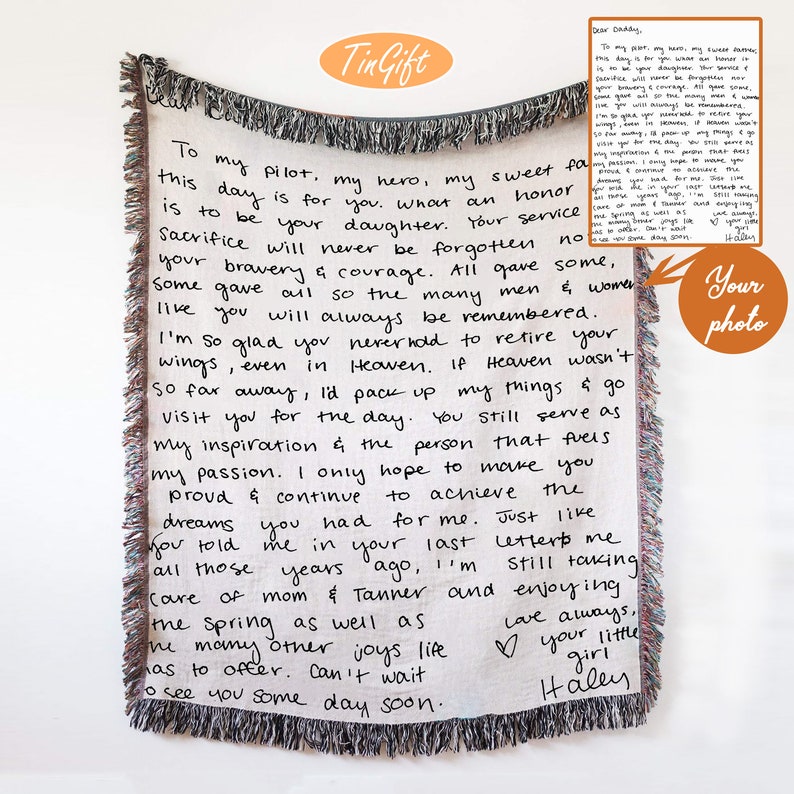 TinGift
Dear Daddy,
To my pilot, my hero, my sweet father,
this day is for you. What an honor it
is to be your daughter. Your service &
sacrifice will never be forgotten nor
your bravery & courage. All gave some,
some gave all so the many men & women
like you will always be remembered.
I'm so glad you never had to retire your
wings, even in Heaven. If Heaven wasn't
so far away, I'd pack up my things & go
visit you for the day. You still serve as
my inspiration & the person that fuels
my passion. I only hope to make you
proud & continue to achieve the
dreams you had for me. Just like
you told me in your last letter to me
all those years ago, I'm still taking
care of mom & Tanner and enjoying
the spring as well as
the many other joys life
has to offer. Can't wait
to see you some day soon.
Love always,
your little
girl
Haley
Your
photo
Dear
To my pilot, my hero, my sweet fa
this day is for you. What an honor
is to be your daughter. Your service
sacrifice will never be forgotten no
your bravery & courage. All gave some,
some gave all so the many men & women
like you will always be remembered.
I'm so glad you never had to retire your
wings, even in Heaven. If Heaven wasn't
so far away, I'd pack up my things & go
visit you for the day. You still serve as
my inspiration & the person that fuels
my passion. I only hope to make you
proud & continue to achieve the
dreams you had for me. Just like
you told me in your last letter to me
all those years ago, I'm still taking
care of mom & Tanner and enjoying
the spring as well as
he many other joys life
has to offer. Can't wait
o see you some day soon.
Love always,
your little
girl
Haley